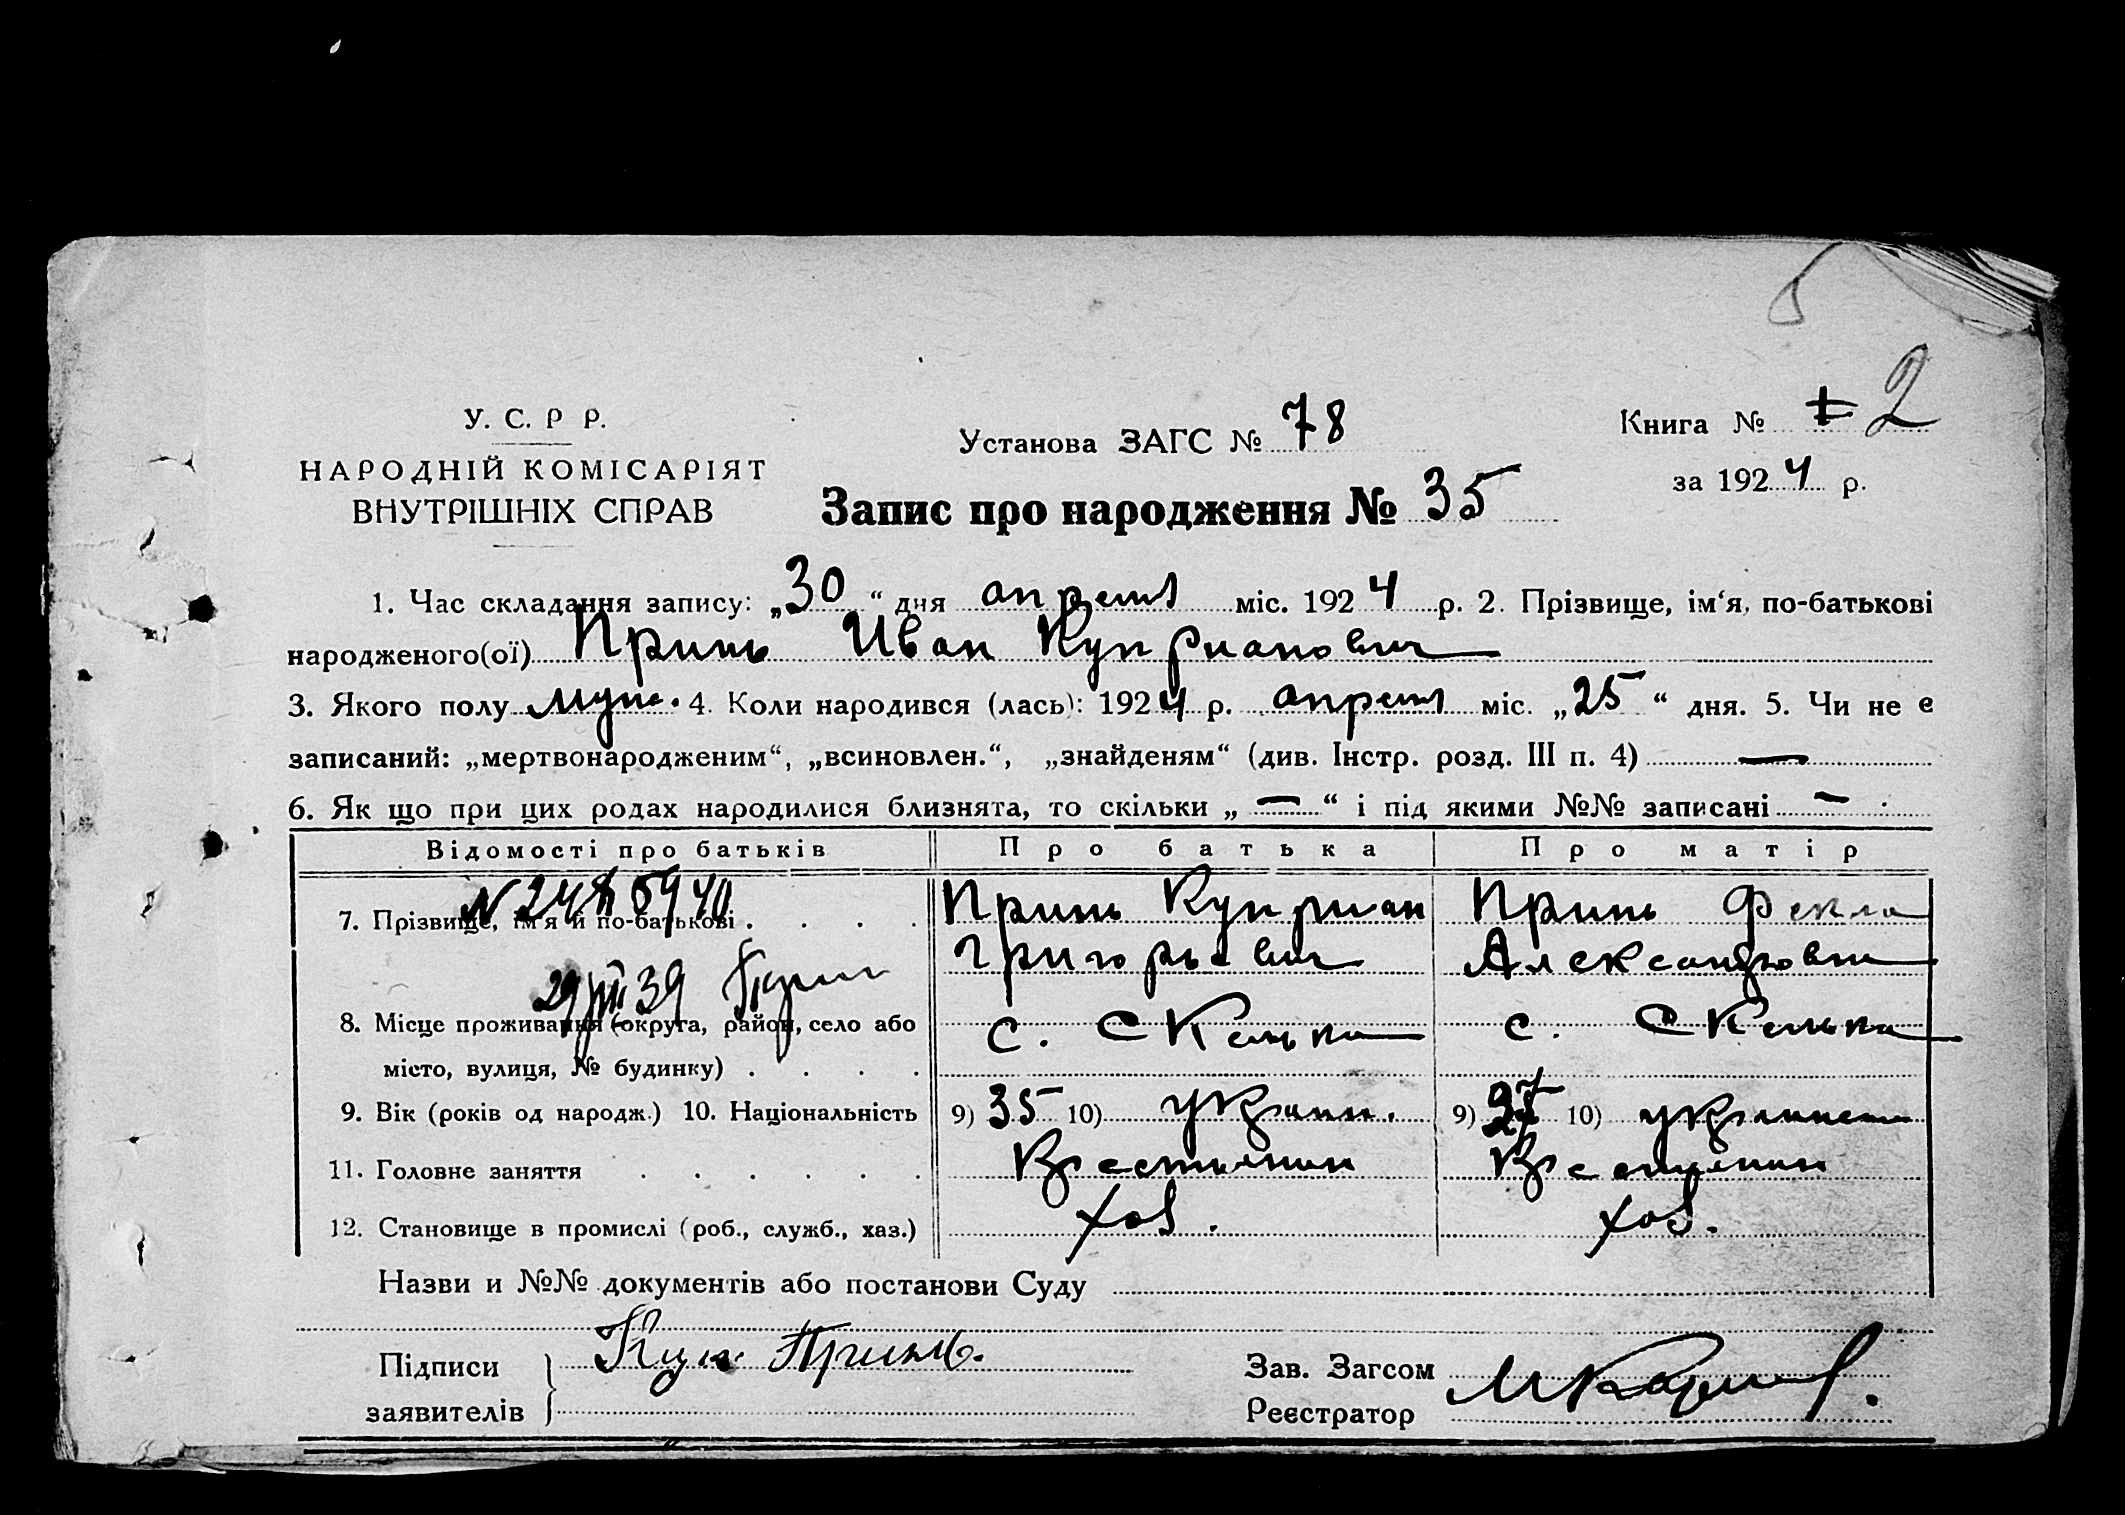 У. С. Р Р.
НАРОДНІЙ КОМІСАРІЯТ
ВНУТРІШНІХ СПРАВ
Установа ЗАГС № 78
Запис про народження № 35
Книга № 2
за 1924 р.
1. Час складання запису: „30“ дня апреля міс. 1924 р. 2. Прізвище, ім‘я, по-батькові
народженого(ої) Принь Иван Куприанович
3. Якого полу муж. 4. Коли народився (лась): 1924 р. апреля міс. „25“ дня. 5. Чи не є
записаний: „мертвонародженим“, „всиновлен.“, „знайденям“ (див. Інстр. розд. III п. 4) —
6. Як що при цих родах народилися близнята, то скільки „ — “ і під якими №№ записані —
Відомості про батьків Про батька Про матір
7. Прізвище, ім‘я й по-батькові Принь Куприан Принь Фекла
Григорьевич Александровна
29/VII 39
8. Місце проживання (округа, район, село або с. Скелька с. Скелька
місто, вулиця, № будинку)
9. Вік (років од народж.) 10. Національність 9) 35 10) украин. 9) 10)
11. Головне заняття Крестьянин Крестьянин
12. Становище в промислі (роб., служб., хаз.) хоз. хоз.
Назви и №№ документів або постанови Суду
Підписи Куп. Принь. Зав. Загсом
заявителів Реєстратор